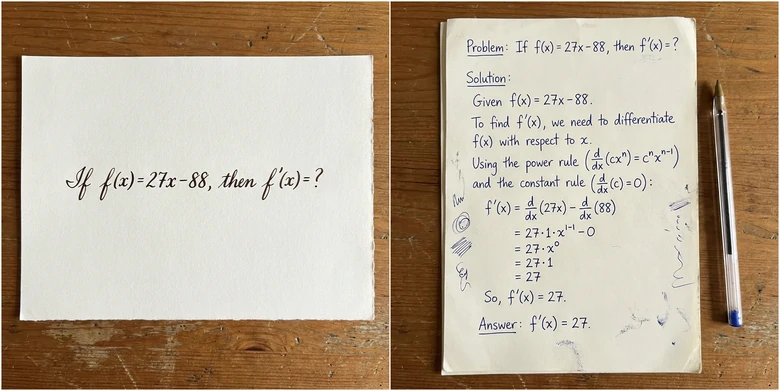 If f(x)=27x-88, then f'(x)=?
Problem: If f(x)=27x-88, then f'(x)=?
Solution:
Given f(x)=27x-88.
To find f'(x), we need to differentiate
f(x) with respect to x.
Using the power rule (d/dx(cxⁿ)=cⁿxⁿ⁻¹)
and the constant rule (d/dx(c)=0):
f'(x) = d/dx(27x) - d/dx(88)
= 27·1·x¹⁻¹ - 0
= 27·x⁰
= 27·1
= 27
So, f'(x) = 27.
Answer: f'(x) = 27.